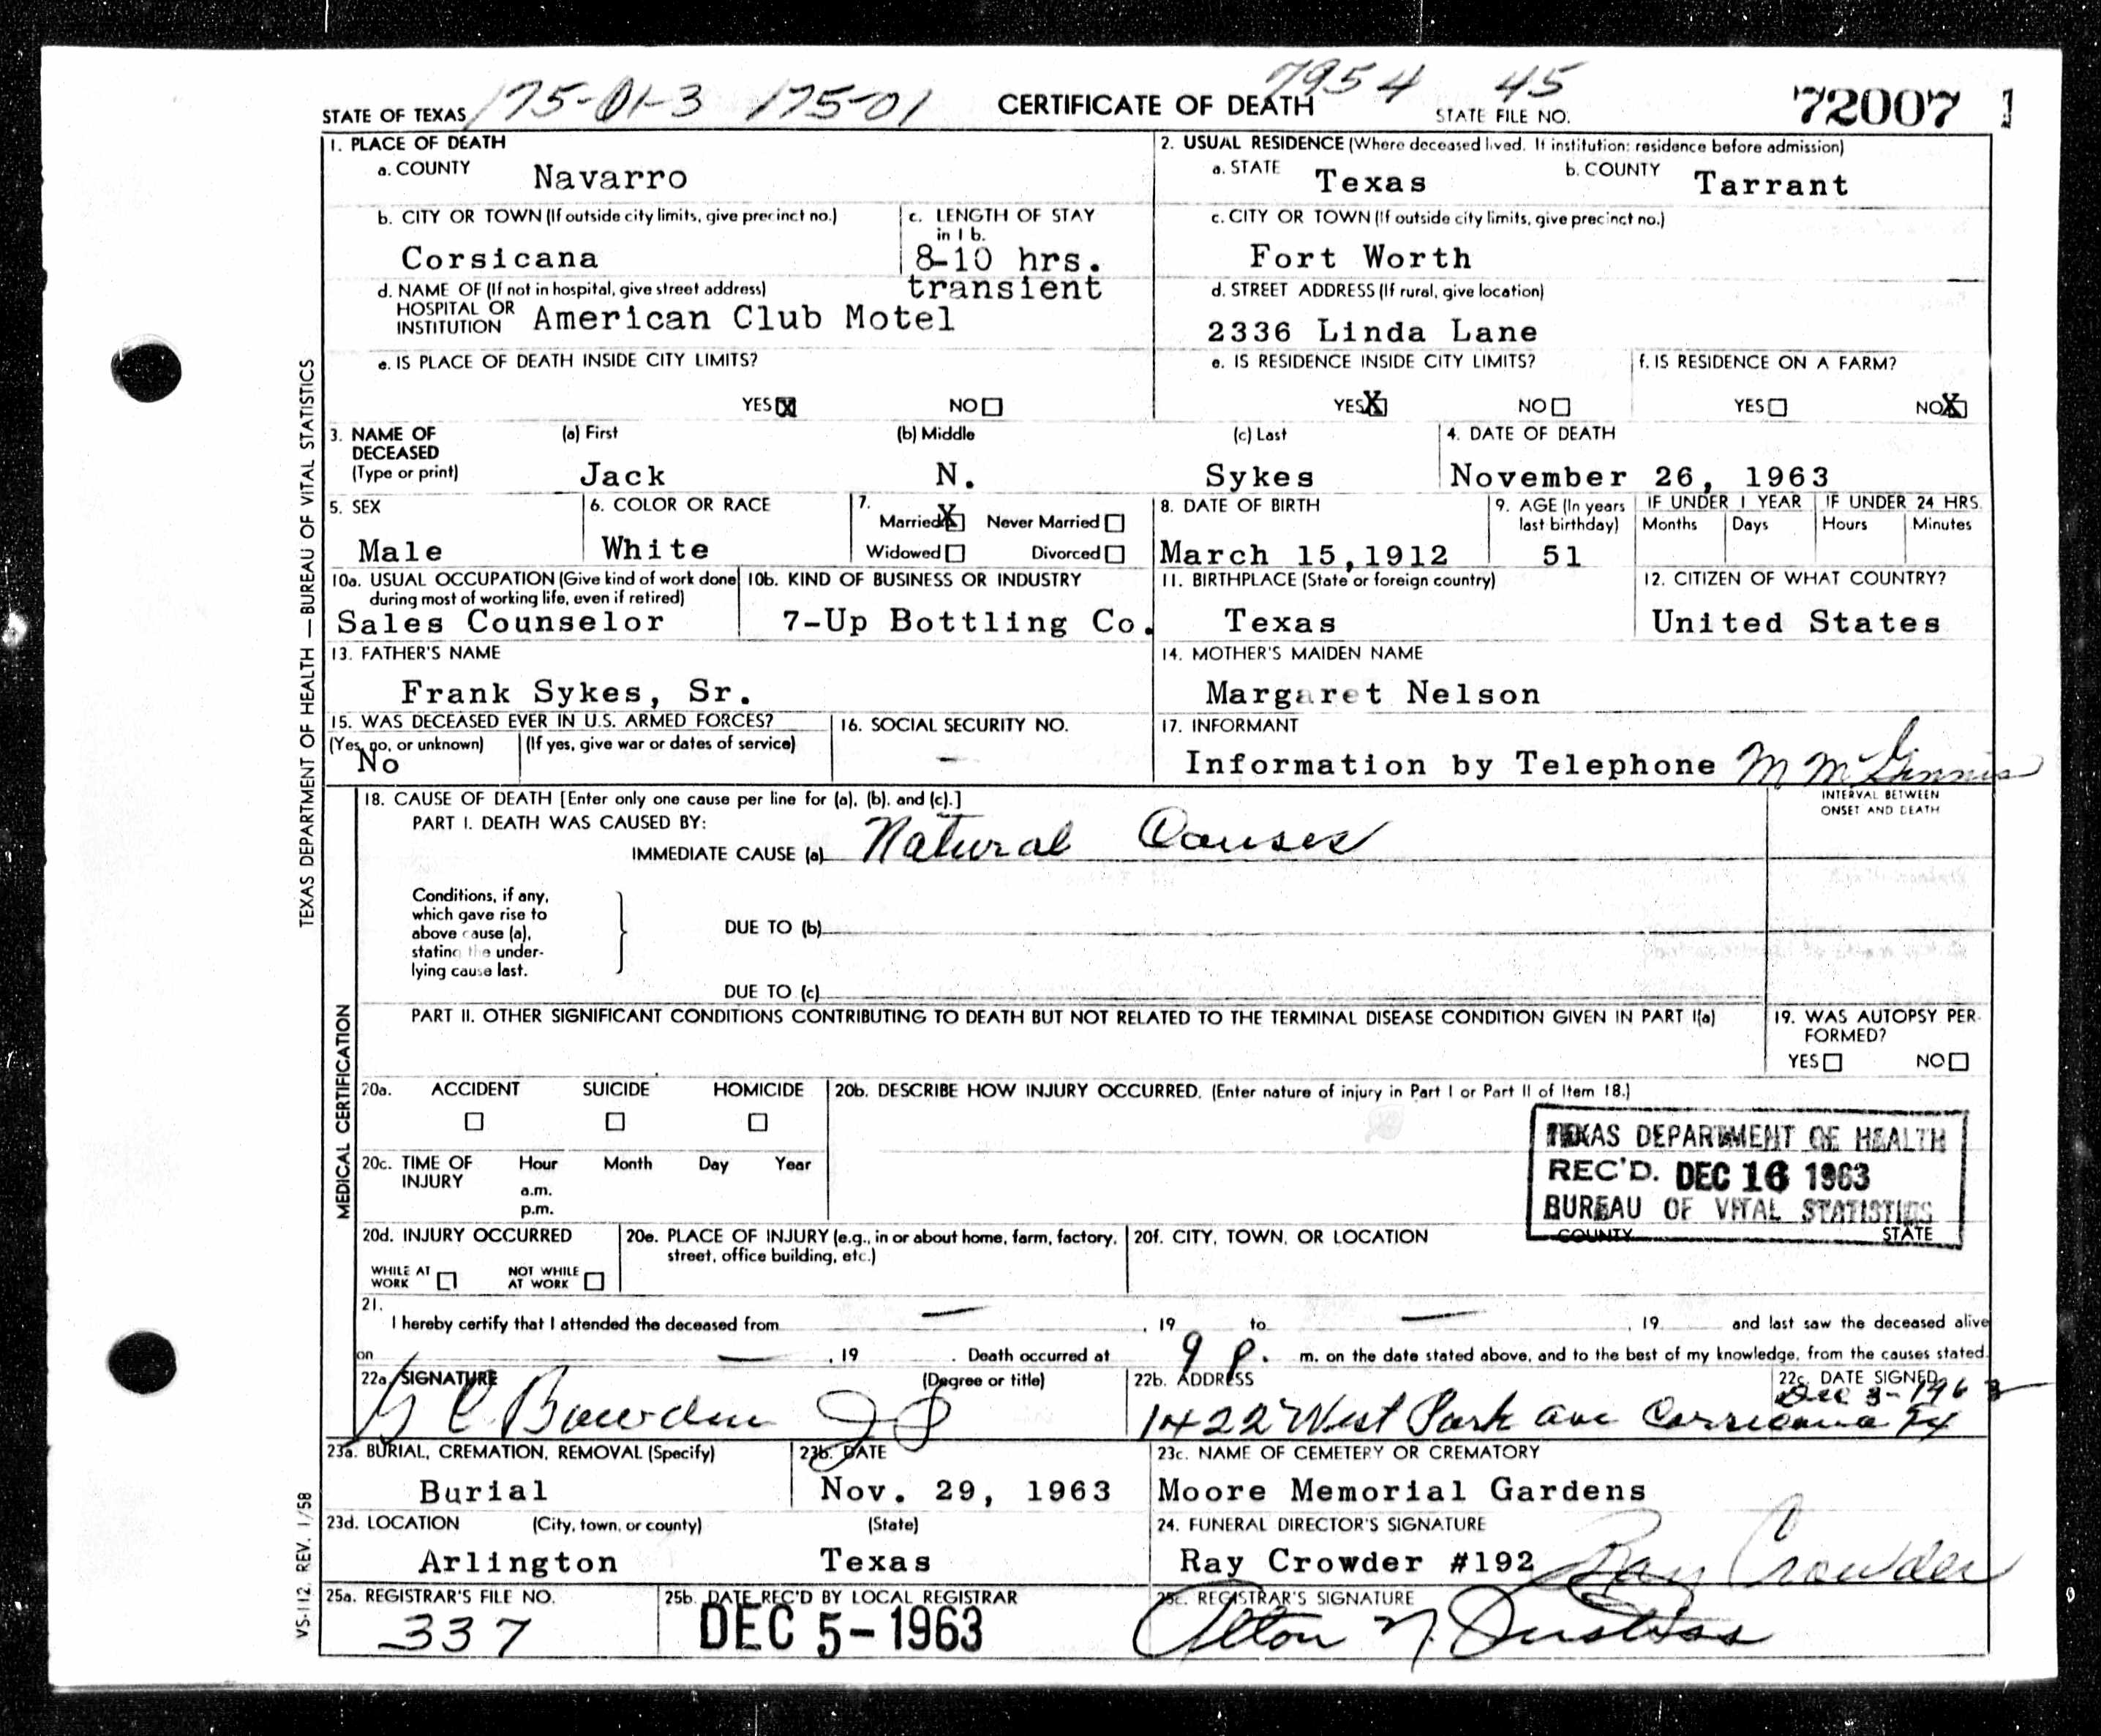 7954 45
STATE OF TEXAS 175-01-3 175-01 CERTIFICATE OF DEATH STATE FILE NO. 72007 1
1. PLACE OF DEATH
a. COUNTY Navarro
b. CITY OR TOWN (If outside city limits, give precinct no.)
Corsicana
c. LENGTH OF STAY
in 1 b.
8-10 hrs.
transient
d. NAME OF (If not in hospital, give street address)
HOSPITAL OR
INSTITUTION American Club Motel
e. IS PLACE OF DEATH INSIDE CITY LIMITS?
YES X NO
2. USUAL RESIDENCE (Where deceased lived. If institution: residence before admission)
a. STATE Texas b. COUNTY Tarrant
c. CITY OR TOWN (If outside city limits, give precinct no.)
Fort Worth
d. STREET ADDRESS (If rural, give location)
2336 Linda Lane
e. IS RESIDENCE INSIDE CITY LIMITS?
YES X NO
f. IS RESIDENCE ON A FARM?
YES NO X
3. NAME OF
DECEASED
(Type or print)
(a) First (b) Middle (c) Last
Jack N. Sykes
4. DATE OF DEATH
November 26, 1963
5. SEX
Male
6. COLOR OR RACE
White
7.
Married X Never Married
Widowed Divorced
8. DATE OF BIRTH
March 15,1912
9. AGE (In years
last birthday)
51
IF UNDER 1 YEAR
Months Days
IF UNDER 24 HRS.
Hours Minutes
10a. USUAL OCCUPATION (Give kind of work done
during most of working life, even if retired)
Sales Counselor
10b. KIND OF BUSINESS OR INDUSTRY
7-Up Bottling Co.
11. BIRTHPLACE (State or foreign country)
Texas
12. CITIZEN OF WHAT COUNTRY?
United States
13. FATHER'S NAME
Frank Sykes, Sr.
14. MOTHER'S MAIDEN NAME
Margaret Nelson
15. WAS DECEASED EVER IN U.S. ARMED FORCES?
(Yes, no, or unknown) (If yes, give war or dates of service)
No
16. SOCIAL SECURITY NO.
-
17. INFORMANT
Information by Telephone M McGinnis
18. CAUSE OF DEATH [Enter only one cause per line for (a), (b), and (c).]
PART I. DEATH WAS CAUSED BY:
IMMEDIATE CAUSE (a) Natural Causes
INTERVAL BETWEEN
ONSET AND DEATH
Conditions, if any,
which gave rise to
above cause (a),
stating the under-
lying cause last.
DUE TO (b)
DUE TO (c)
PART II. OTHER SIGNIFICANT CONDITIONS CONTRIBUTING TO DEATH BUT NOT RELATED TO THE TERMINAL DISEASE CONDITION GIVEN IN PART I(a)
19. WAS AUTOPSY PER-
FORMED?
YES NO
20a. ACCIDENT SUICIDE HOMICIDE
20b. DESCRIBE HOW INJURY OCCURRED. (Enter nature of injury in Part I or Part II of Item 18.)
TEXAS DEPARTMENT OF HEALTH
REC'D. DEC 16 1963
BUREAU OF VITAL STATISTICS
20c. TIME OF
INJURY
Hour Month Day Year
a.m.
p.m.
20d. INJURY OCCURRED
WHILE AT
WORK
NOT WHILE
AT WORK
20e. PLACE OF INJURY (e.g., in or about home, farm, factory,
street, office building, etc.)
20f. CITY, TOWN, OR LOCATION COUNTY STATE
21.
I hereby certify that I attended the deceased from — , 19 to — , 19 and last saw the deceased alive
on — , 19 . Death occurred at 9 P. m. on the date stated above, and to the best of my knowledge, from the causes stated.
22a. SIGNATURE (Degree or title)
Bowden JP
22b. ADDRESS
1422 West Park ave Corsicana Tx
22c. DATE SIGNED
Dec 3-1963
23a. BURIAL, CREMATION, REMOVAL (Specify)
Burial
23b. DATE
Nov. 29, 1963
23c. NAME OF CEMETERY OR CREMATORY
Moore Memorial Gardens
23d. LOCATION (City, town, or county) (State)
Arlington Texas
24. FUNERAL DIRECTOR'S SIGNATURE
Ray Crowder #192 Ray Crowder
25a. REGISTRAR'S FILE NO.
337
25b. DATE REC'D BY LOCAL REGISTRAR
DEC 5-1963
25c. REGISTRAR'S SIGNATURE
Alton N. Justiss
TEXAS DEPARTMENT OF HEALTH — BUREAU OF VITAL STATISTICS
MEDICAL CERTIFICATION
VS-112. REV. 1/58